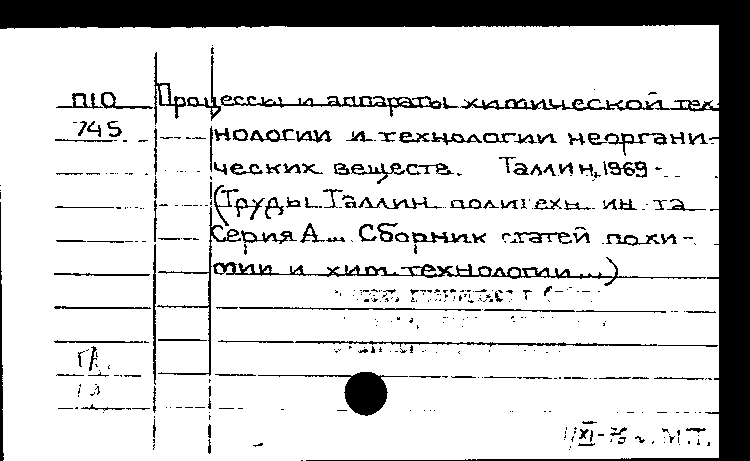 П10 Процессы и аппараты химической тех-
745 нологии и технологии неоргани-
ческих веществ. Таллин, 1969-
(Труды Таллин. политехн. ин-та
Серия А... Сборник статей по хи-
мии и хим. технологии...)
ГЛ.
11/XI-76 г. М.Т.